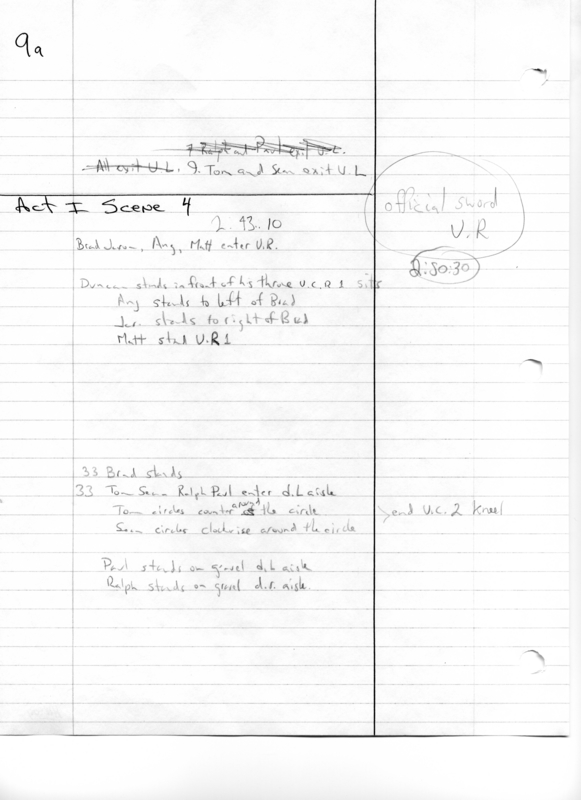 9a
7 Ralph and Paul exit U.L.
All exit U.L. 9. Tom and Sean exit U.L
official sword
U.R
2:50:30
Act I Scene 4
2.43.10
Brad Jerom, Ang, Matt enter U.R.
Duncan stands in front of his throne U.C.R 1 sits
Ang stands to left of Brad
Jer. stands to right of Brad
Matt stand U.R 1
33 Brad stands
33 Tom Sean Ralph Paul enter d.L aisle
Tom circles counter around the circle
>end U.C. 2 kneel
Sean circles clockwise around the circle
Paul stands on gravel d.L aisle
Ralph stands on gravel d.r. aisle.